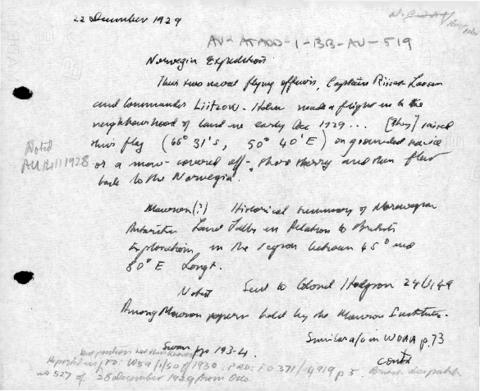 22 December 1929
AU-ATADD-1-BB-AU-519
Norwegian Expedition
Their two naval flying officers, Captain Riiser Larsen
and Commander Lützow-Holm made a flight in to the
neighbourhood of land in early Dec 1929... [they] raised
their flag (66° 31's, 50° 40'E) on grounded sea ice
or a snow-covered off-shore skerry and then flew
back to the Norvegia".
Noted
1928
Mawson (?) Historical Summary of Norwegian
Antarctic Land Falls in Relation to British
Exploration in the region between 45° and
80° E Longt.
Noted Sent to Colonel Hodgson
Among Mawson papers held by the Mawson Institute.
Swan pp 193-4.
Similar a/c in WODA p.73
Reported in FO: 1930: PRO: FO 371/ p 5.
no 527 of 28 December 1929 from Oslo